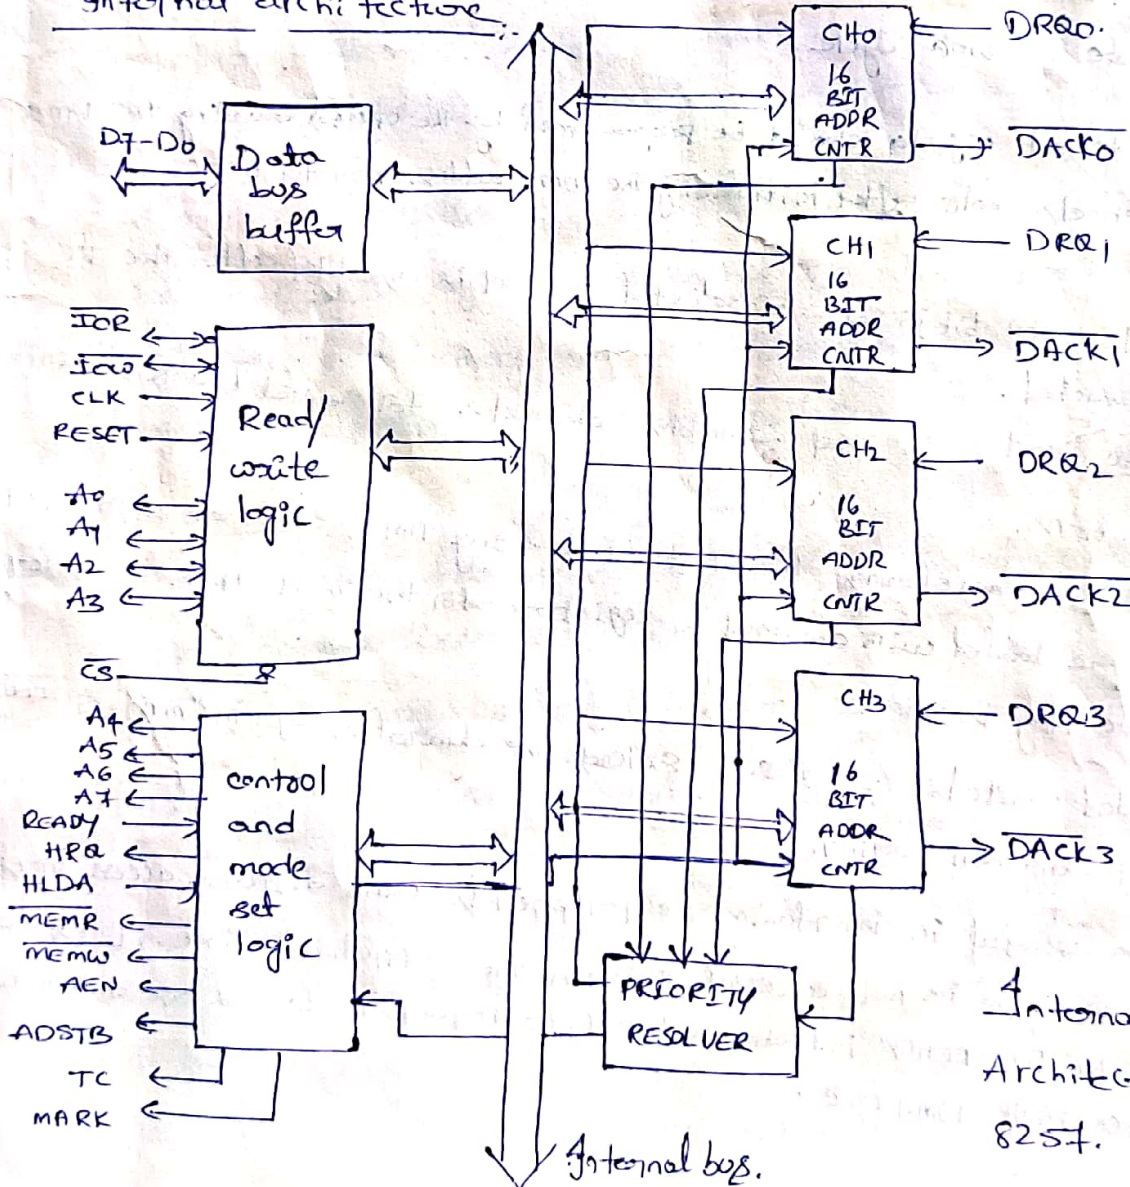 Internal architecture:-
D7-D0
Data
bus
buffer
IOR
IOW
CLK
RESET
A0
A1
A2
A3
Read/
write
logic
CS
A4
A5
A6
A7
READY
HRQ
HLDA
MEMR
MEMW
AEN
ADSTB
TC
MARK
control
and
mode
set
logic
CH0
16
BIT
ADDR
CNTR
DRQ0.
DACK0
CH1
16
BIT
ADDR
CNTR
DRQ1
DACK1
CH2
16
BIT
ADDR
CNTR
DRQ2
DACK2
CH3
16
BIT
ADDR
CNTR
DRQ3
DACK3
PRIORITY
RESOLVER
Internal bus.
Interna
Architec
8257.